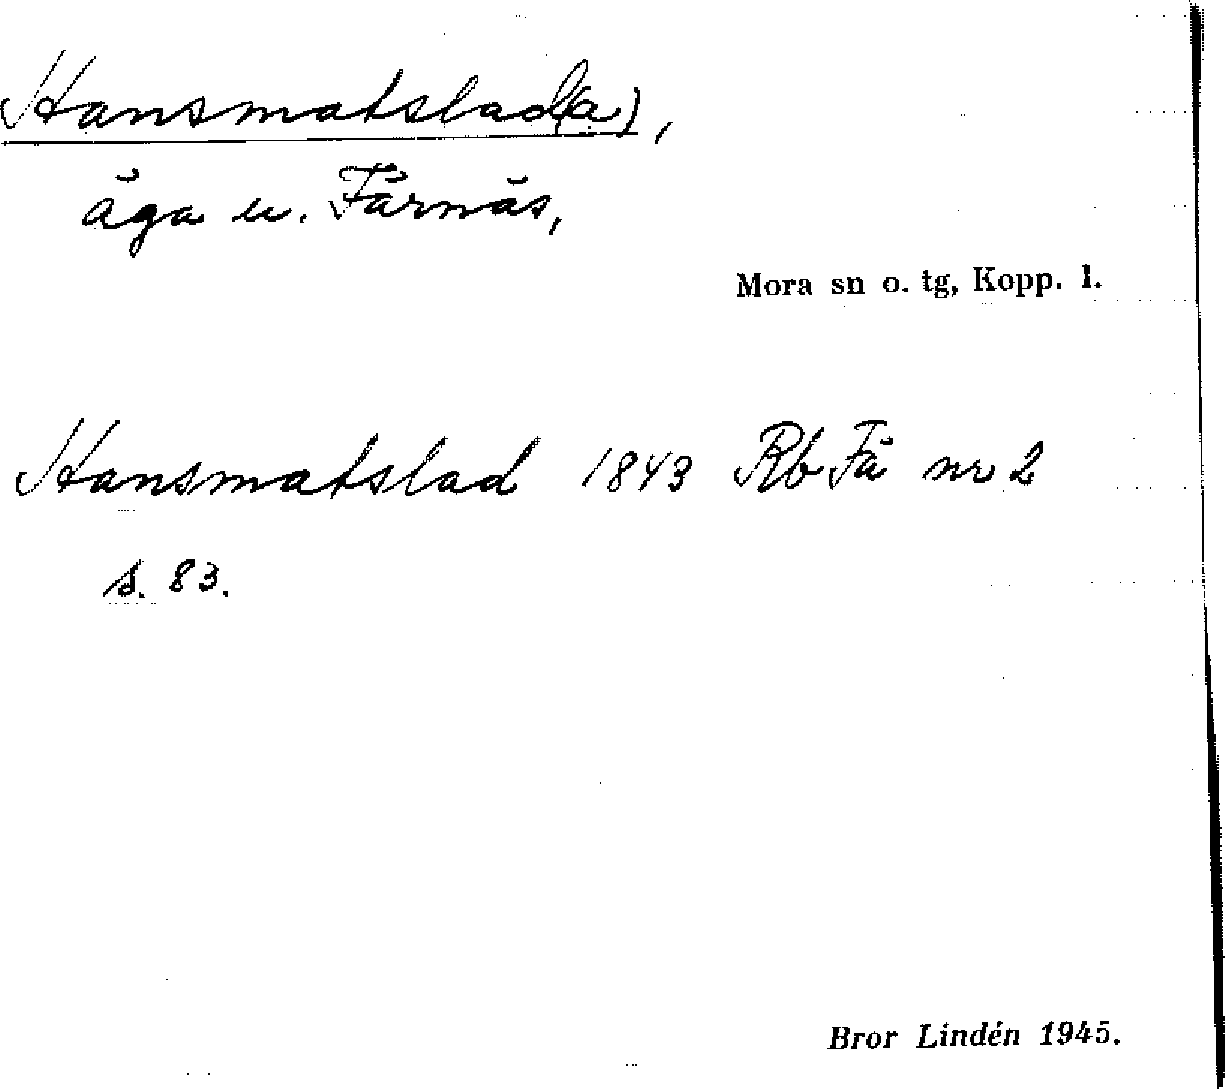 Hansmatslad(a),
äga u. Färnäs,
Mora sn o. tg, Kopp. l.
Hansmatslad 1843 Rb Fä nr 2
s. 83.
Bror Lindén 1945.